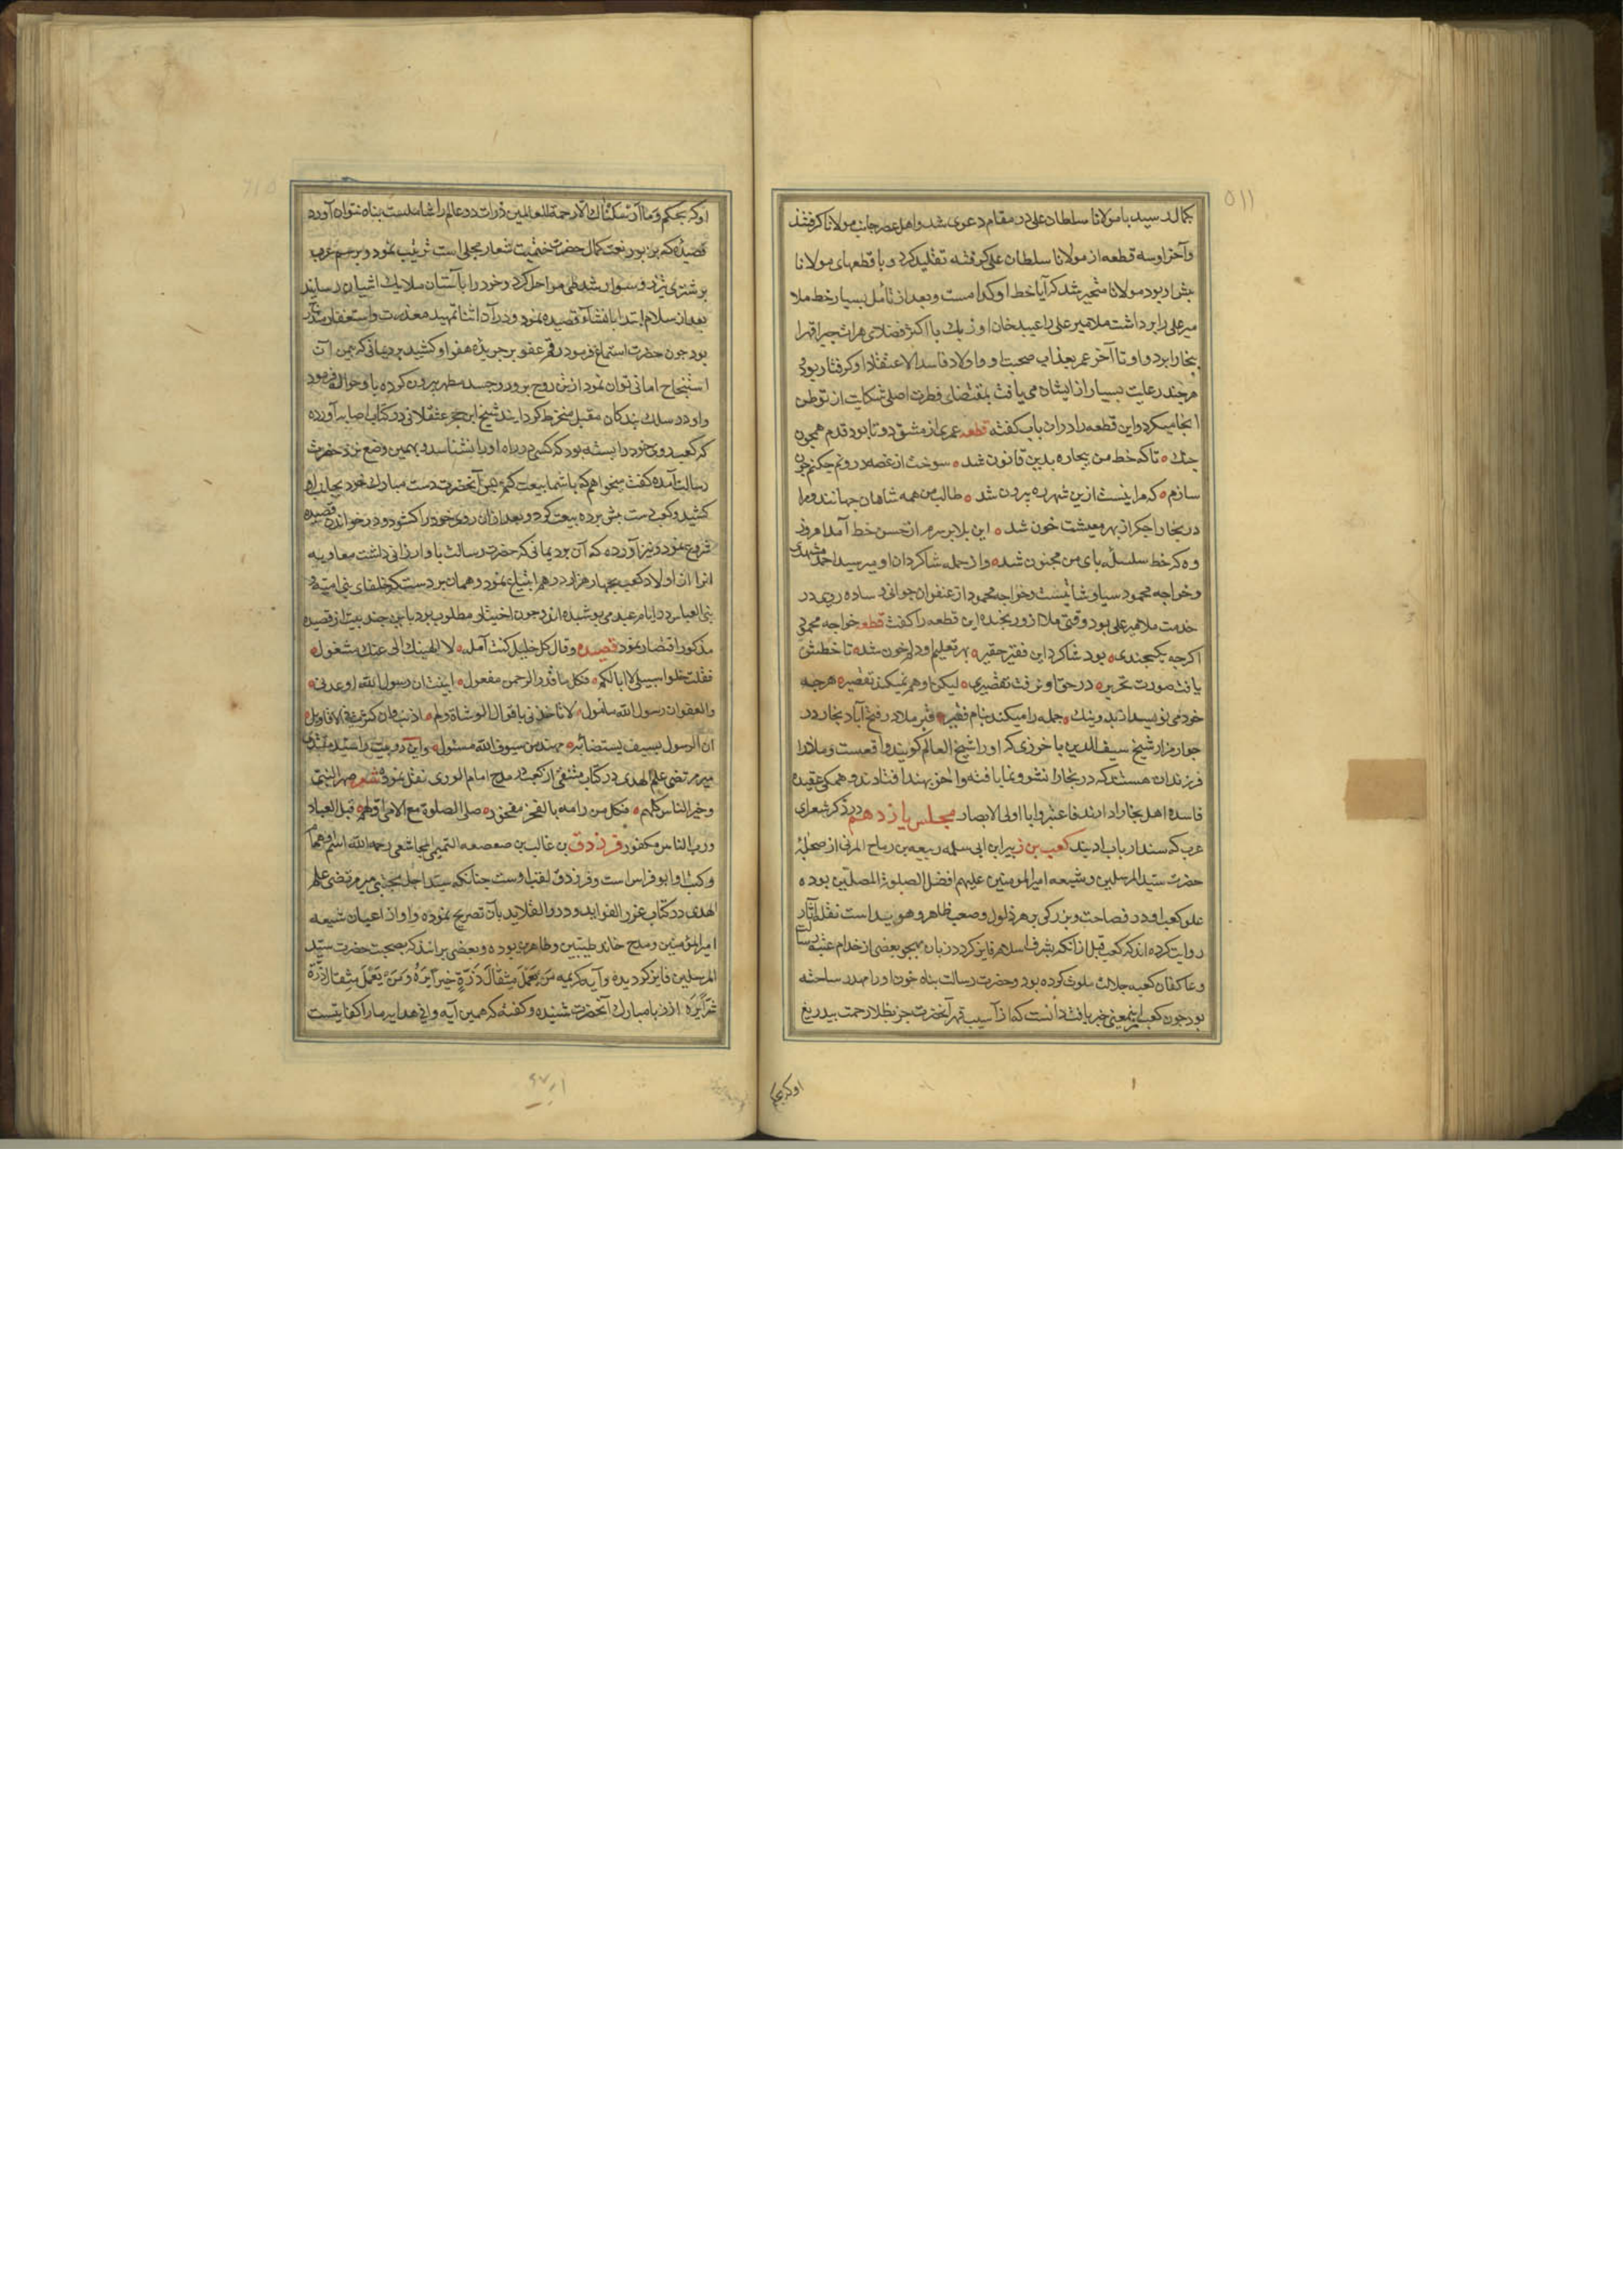 ۵۱۱
بکمال رسید با مولانا سلطان علی در مقام دعوی شد و اهل عصر جانب مولانا کرفتند
و آخر او سه قطعه از مولانا سلطان علی کرفته تقلید کرد و با قطعهای مولانا
پیش او برد مولانا متحیر شد که آیا خط او کدامست و بعد از تأمل بسیار خط ملا
میر علی را برداشت ملا میر علی را عبید خان اوزبک با اکثر فضلای هراة جبرا قهرا
بخارا برد و او تا آخر عمر بعذاب صحبت او و اولاد فاسد الاعتقاد او کرفتار بود
هر چند رعایت بسیار از ایشان می یافت بمقتضای فطرت اصلی شکایت از توطن
انجا میکرد و این قطعه را در ان باب کفته قطعه عمری از مشق دو تا بود قدم همچون
چنک تا که خط من بیچاره بدین قانون شد سوخت از غصه درونم چکنم چون
سازم که مرا نیست ازین شهر ره بیرون شد طالب من همه شاهان جهانند و مرا
در بخارا جکر از بهر معیشت خون شد این بلا بر سرم از حسن خط آمد امروز
وه که خط سلسله پای من مجنون شد و از جمله شاکردان او میر سید احمد مشهدی
و خواجه محمود سیاوشانیست و خواجه محمود از عنفوان جوانی و ساده رویی در
خدمت ملا میر علی بود وقتی ملا ازو رنجیده این قطعه را کفت قطعه خواجه محمود
اکرچه یکچندی بود شاکرد این فقیر حقیر بهر تعلیم او دلم خون شد تا خطش
یافت صورت تحریر در حق او نرفت تقصیری لیکن او هم نمیکند تقصیر هرچه
خود می نویسد از بد و نیک جمله را میکند بنام فقیر قبر ملا در فتح آباد بخارا در
جوار مزار شیخ سیف الدین باخرزی که او را شیخ العالم کویند واقعست و ملا را
فرزندان هستند که در بخارا نشو و نما یافته و آخر بهند افتادند و همکی عقیده
فاسده اهل بخارا دارند فاعتبروا یا اولی الابصار مجلس یازدهم در ذکر شعرای
عرب که سند ارباب ادبند کعب بن زهیر ابن ابی سلمه ربیعه بن رباح المزنی از صحابه
حضرت سید المرسلین و شیعه امیر المومنین علیهم افضل الصلوة المصلین بوده
علو کعب او در فصاحت و بزرکی بر هر ذلول و صعب ظاهر و هویداست نقله آثار
روایت کرده اند که کعب قبل از آنکه بشرف اسلام فایز کردد زبان بهجو بعضی از خدام عتبه رسالت
و عاکفان کعبه جلالت ملوث کرده بود و حضرت رسالت پناه خون او را مهدر ساخته
بود چون کعب ازین معنی خبر یافت دانست که از آسیب قهر آنحضرت جز بظلال رحمت بیدریغ
اوکه بحکم
اوکه بحکم و ما ارسلناک الا رحمة للعالمین ذرات دو عالم را شاملست پناه نتوان آورد
قصیده که بزیور نعت کمال حضرت ختمیت شعار محلی است ترتیب نمود و برسم عرب
بر شتری تیزرو سوار شده طی مراحل کرد و خود را بآستان ملایک اشیان رسانید
بعد از سلام ابتدا بانشاء قصیده نمود و در آن اثنا تمهید معذرت و استغفار مندرج
بود چون حضرت استماع فرمود رقم عفو بر جریده هفو او کشید برد یمانی که بیمن آن
استنجاح امانی توان نمود از تن روح پرور و جسد مطهر بیرون کرده باو حواله فرمود
و او در سلک بندکان مقبل منخرط کردانید شیخ ابن حجر عسقلانی در کتاب اصابه آورده
که کعب روی خود را بسته بود که کسی در راه او را نشناسد و بهمین وضع نزد حضرت
رسالت آمده کفت میخواهم که با شما بیعت کنم پس آنحضرت دست مبارک خود بجانب او
کشید و کعب دست پیش برده بیعت کرد و بعد از آن روی خود را کشود و در خواندن قصیده
شروع نمود و نیز آورده که آن برد یمانی که حضرت رسالت باو ارزانی داشت معاویه
انرا از اولاد کعب بچهار هزار درهم ابتیاع نمود و همان بردست که خلفای بنی امیه و
بنی العباس در ایام عید می پوشیده اند و چون اختیار مطلوب بود باین چند بیت از قصیده
مذکور اقتصار نمود قصیده و قال کل خلیل کنت آمله لا الهینک انی عنک مشغول
فقلت خلوا سبیلی لا ابا لکم فکل ما قدر الرحمن مفعول انبئت ان رسول الله اوعدنی
والعفو ان رسول الله مأمول لا تأخذنی باقوال الوشاة ولم اذنب وان کثرت فی الاقاویل
ان الرسول لسیف یستضاء به مهند من سیوف الله مسلول و این دو بیت را سید مرتضی
میر مرتضی علم الهدی در کتاب منتقی از کعب در مدح امام الوری نقل نموده شعر صهر النبی
و خیر الناس کلهم فکل من رامه بالفخر مفخور صلی الصلوة مع الامی اولهم قبل العباد
و رب الناس مکفور فرزدق بن غالب بن صعصعه التمیمی المجاشعی رحمه الله اسم او همام
و کنیت او ابو فراس است و فرزدق لقب اوست چنانکه سید اجل مجتبی میر مرتضی علم
الهدی در کتاب غرر الفواید و درر القلاید بآن تصریح نموده و او از اعیان شیعه
امیر المؤمنین و مداح خاندان طیبین و طاهرین بوده و بعضی برانند که بصحبت حضرت سید
المرسلین فایز کردیده و آیه کریمه من یعمل مثقال ذرة خیرا یره و من یعمل مثقال ذرة
شرا یره از زبان مبارک آنحضرت شنیده و کفته که همین آیه وافی هدایه ما را کافیست